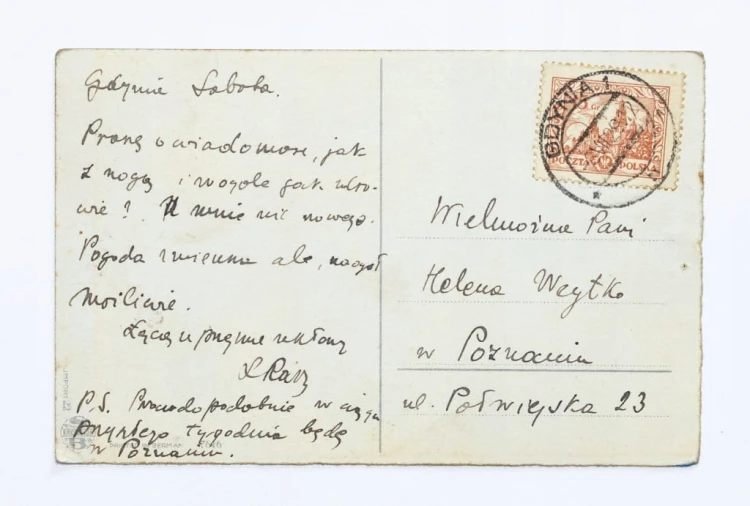 Gdynia Sobota.
Proszę o wiadomość, jak
z nogą i wogóle jak zdro-
wie? U mnie nic nowego.
Pogoda zmienna ale, naogół
możliwie.
Łączę uprzejme ukłony
P.S. Prawdopodobnie w ciągu
przyszłego tygodnia będę
w Poznaniu.
GDYNIA 1
POCZTA POLSKA
Wielmożna Pani
Helena Weytko
w Poznaniu
ul. Półwiejska 23